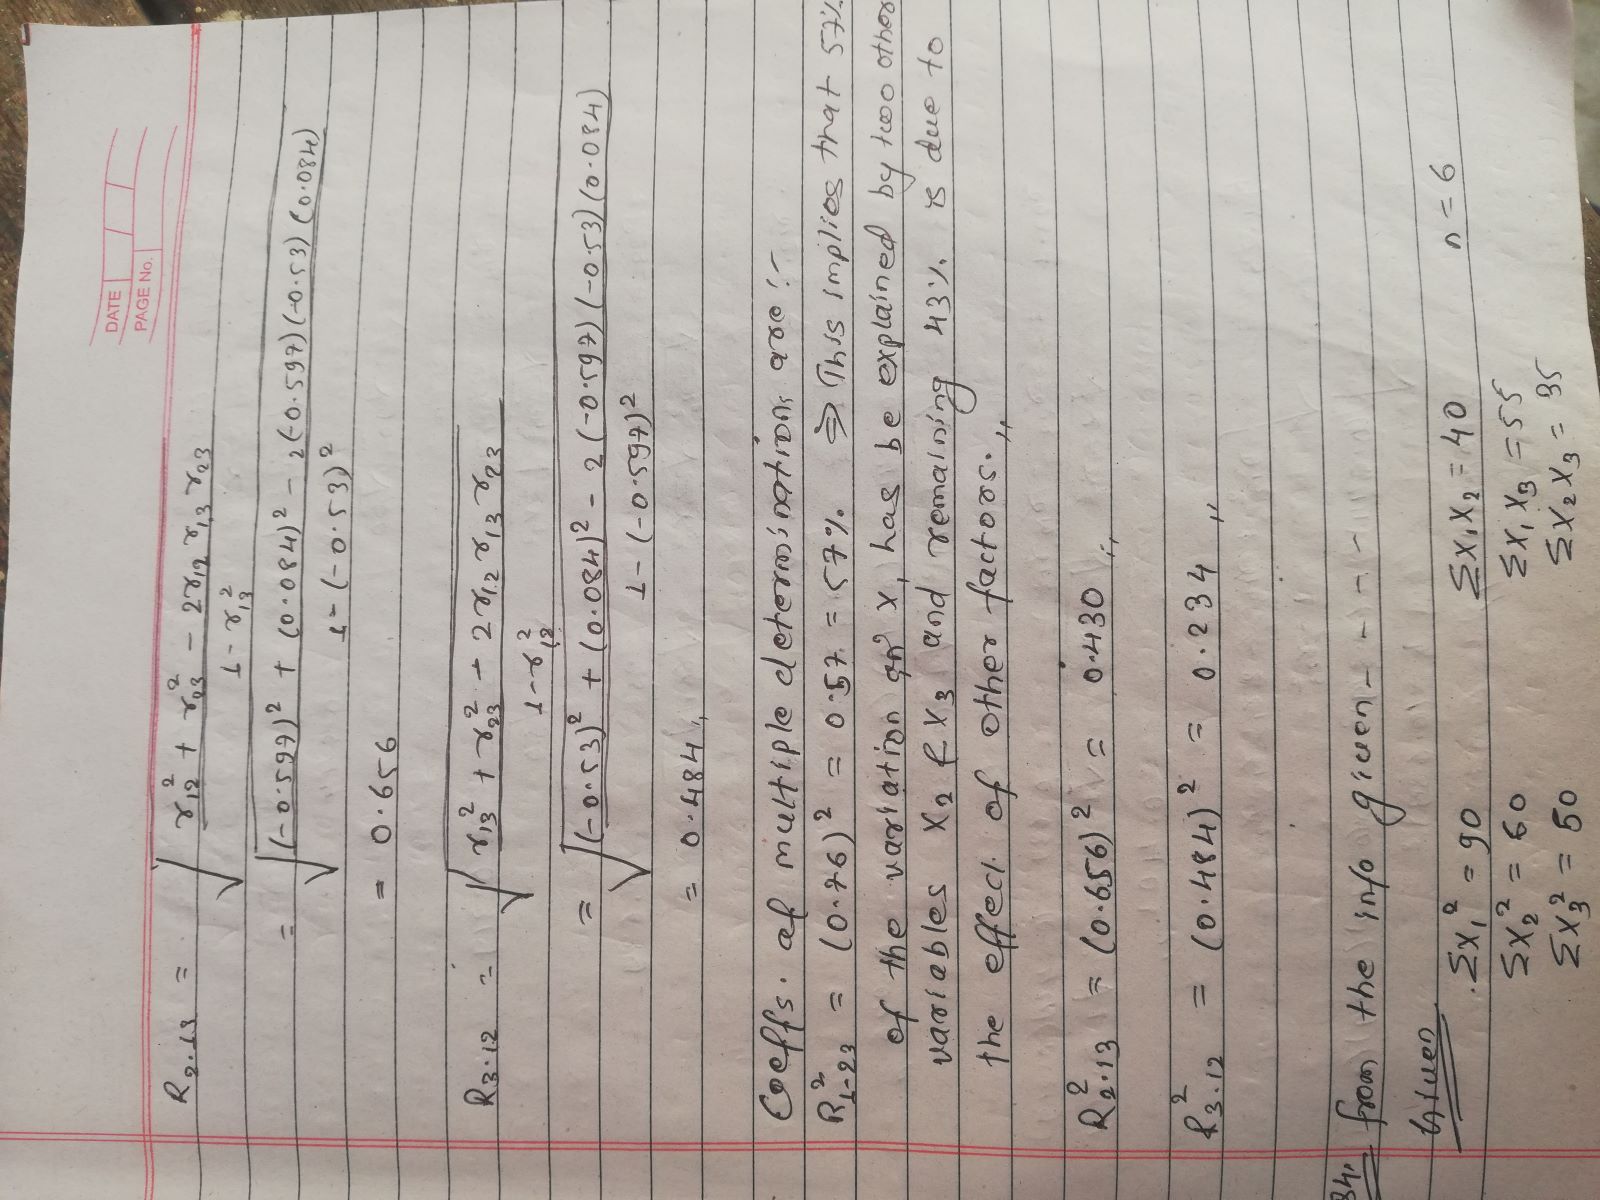 DATE
PAGE No.
R2.13 = √((r12² + r23² - 2r12 r13 r23) / (1 - r13²))
= √(((-0.597)² + (0.084)² - 2(-0.597)(-0.53)(0.084)) / (1 - (-0.53)²))
= 0.656
R3.12 = √((r13² + r23² - 2r12 r13 r23) / (1 - r12²))
= √(((-0.53)² + (0.084)² - 2(-0.597)(-0.53)(0.084)) / (1 - (-0.597)²))
= 0.484,,
Coeffs. of multiple determinations are:-
R²1.23 = (0.76)² = 0.57 = 57%. ⇒ This implies that 57%
of the variation on X1 has be explained by two other
variables X2 & X3 and remaining 43% is due to
the effect of other factors.,,
R²2.13 = (0.656)² = 0.430,,
R²3.12 = (0.484)² = 0.234,,
34. from the info given - - - -
Given
ΣX1² = 90 ΣX1X2 = 40 n = 6
ΣX2² = 60 ΣX1X3 = 55
ΣX3² = 50 ΣX2X3 = 35